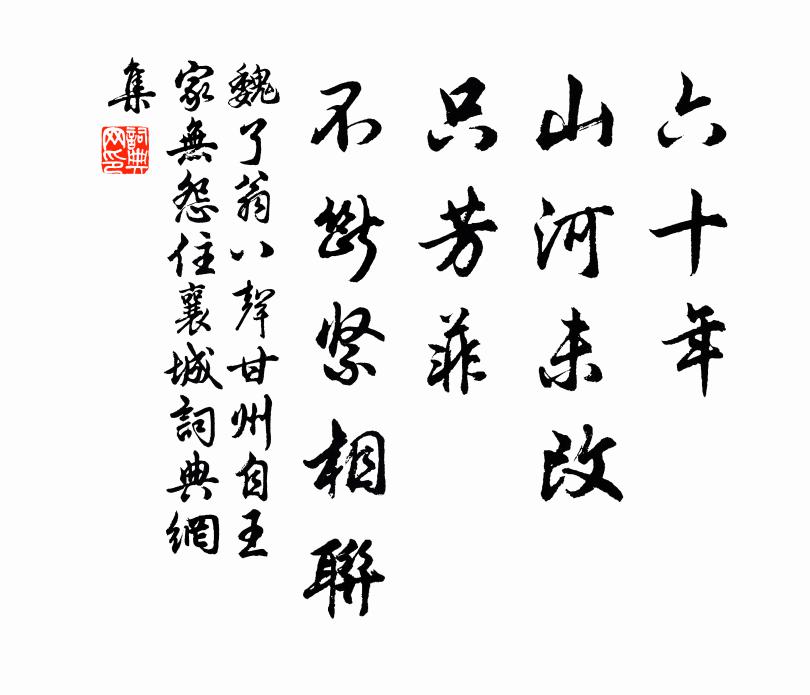 六十年
山河未改
只芳菲
不斷緊相聯
魏了翁八聲甘州自王
家無怨住襄城詞典網
集
詞典
网印